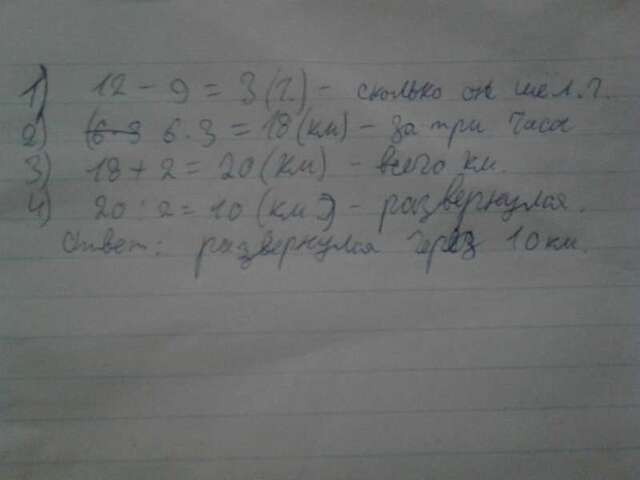 1) 12 - 9 = 3 (ч.) - сколько он шел. ч.
2) 6 · 3 = 18 (км) - за три часа
3) 18 + 2 = 20 (км) - всего км.
4) 20 : 2 = 10 (км) - развернулся.
Ответ: развернулся через 10 км.